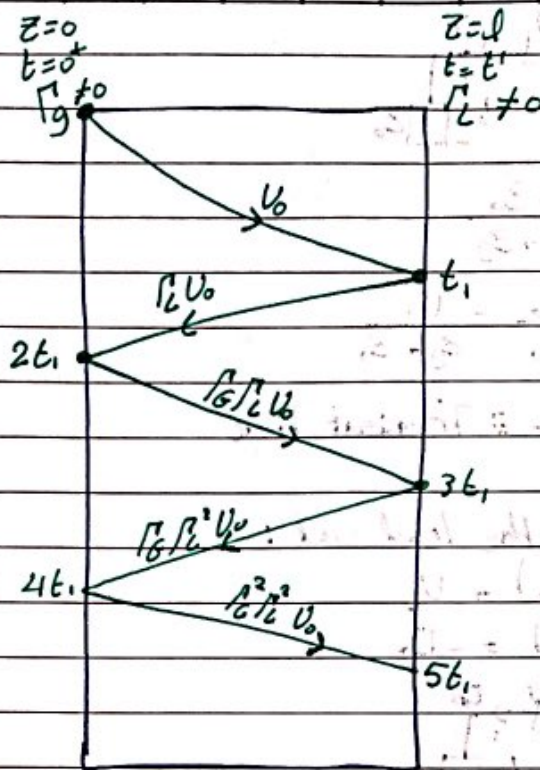 z=0
z=l
t=0⁺
t=t'
Γg ≠0
ΓL ≠0
V₀
t₁
ΓL V₀
2t₁
ΓG ΓL V₀
3t₁
ΓG ΓL² V₀
4t₁
ΓG² ΓL² V₀
5t₁